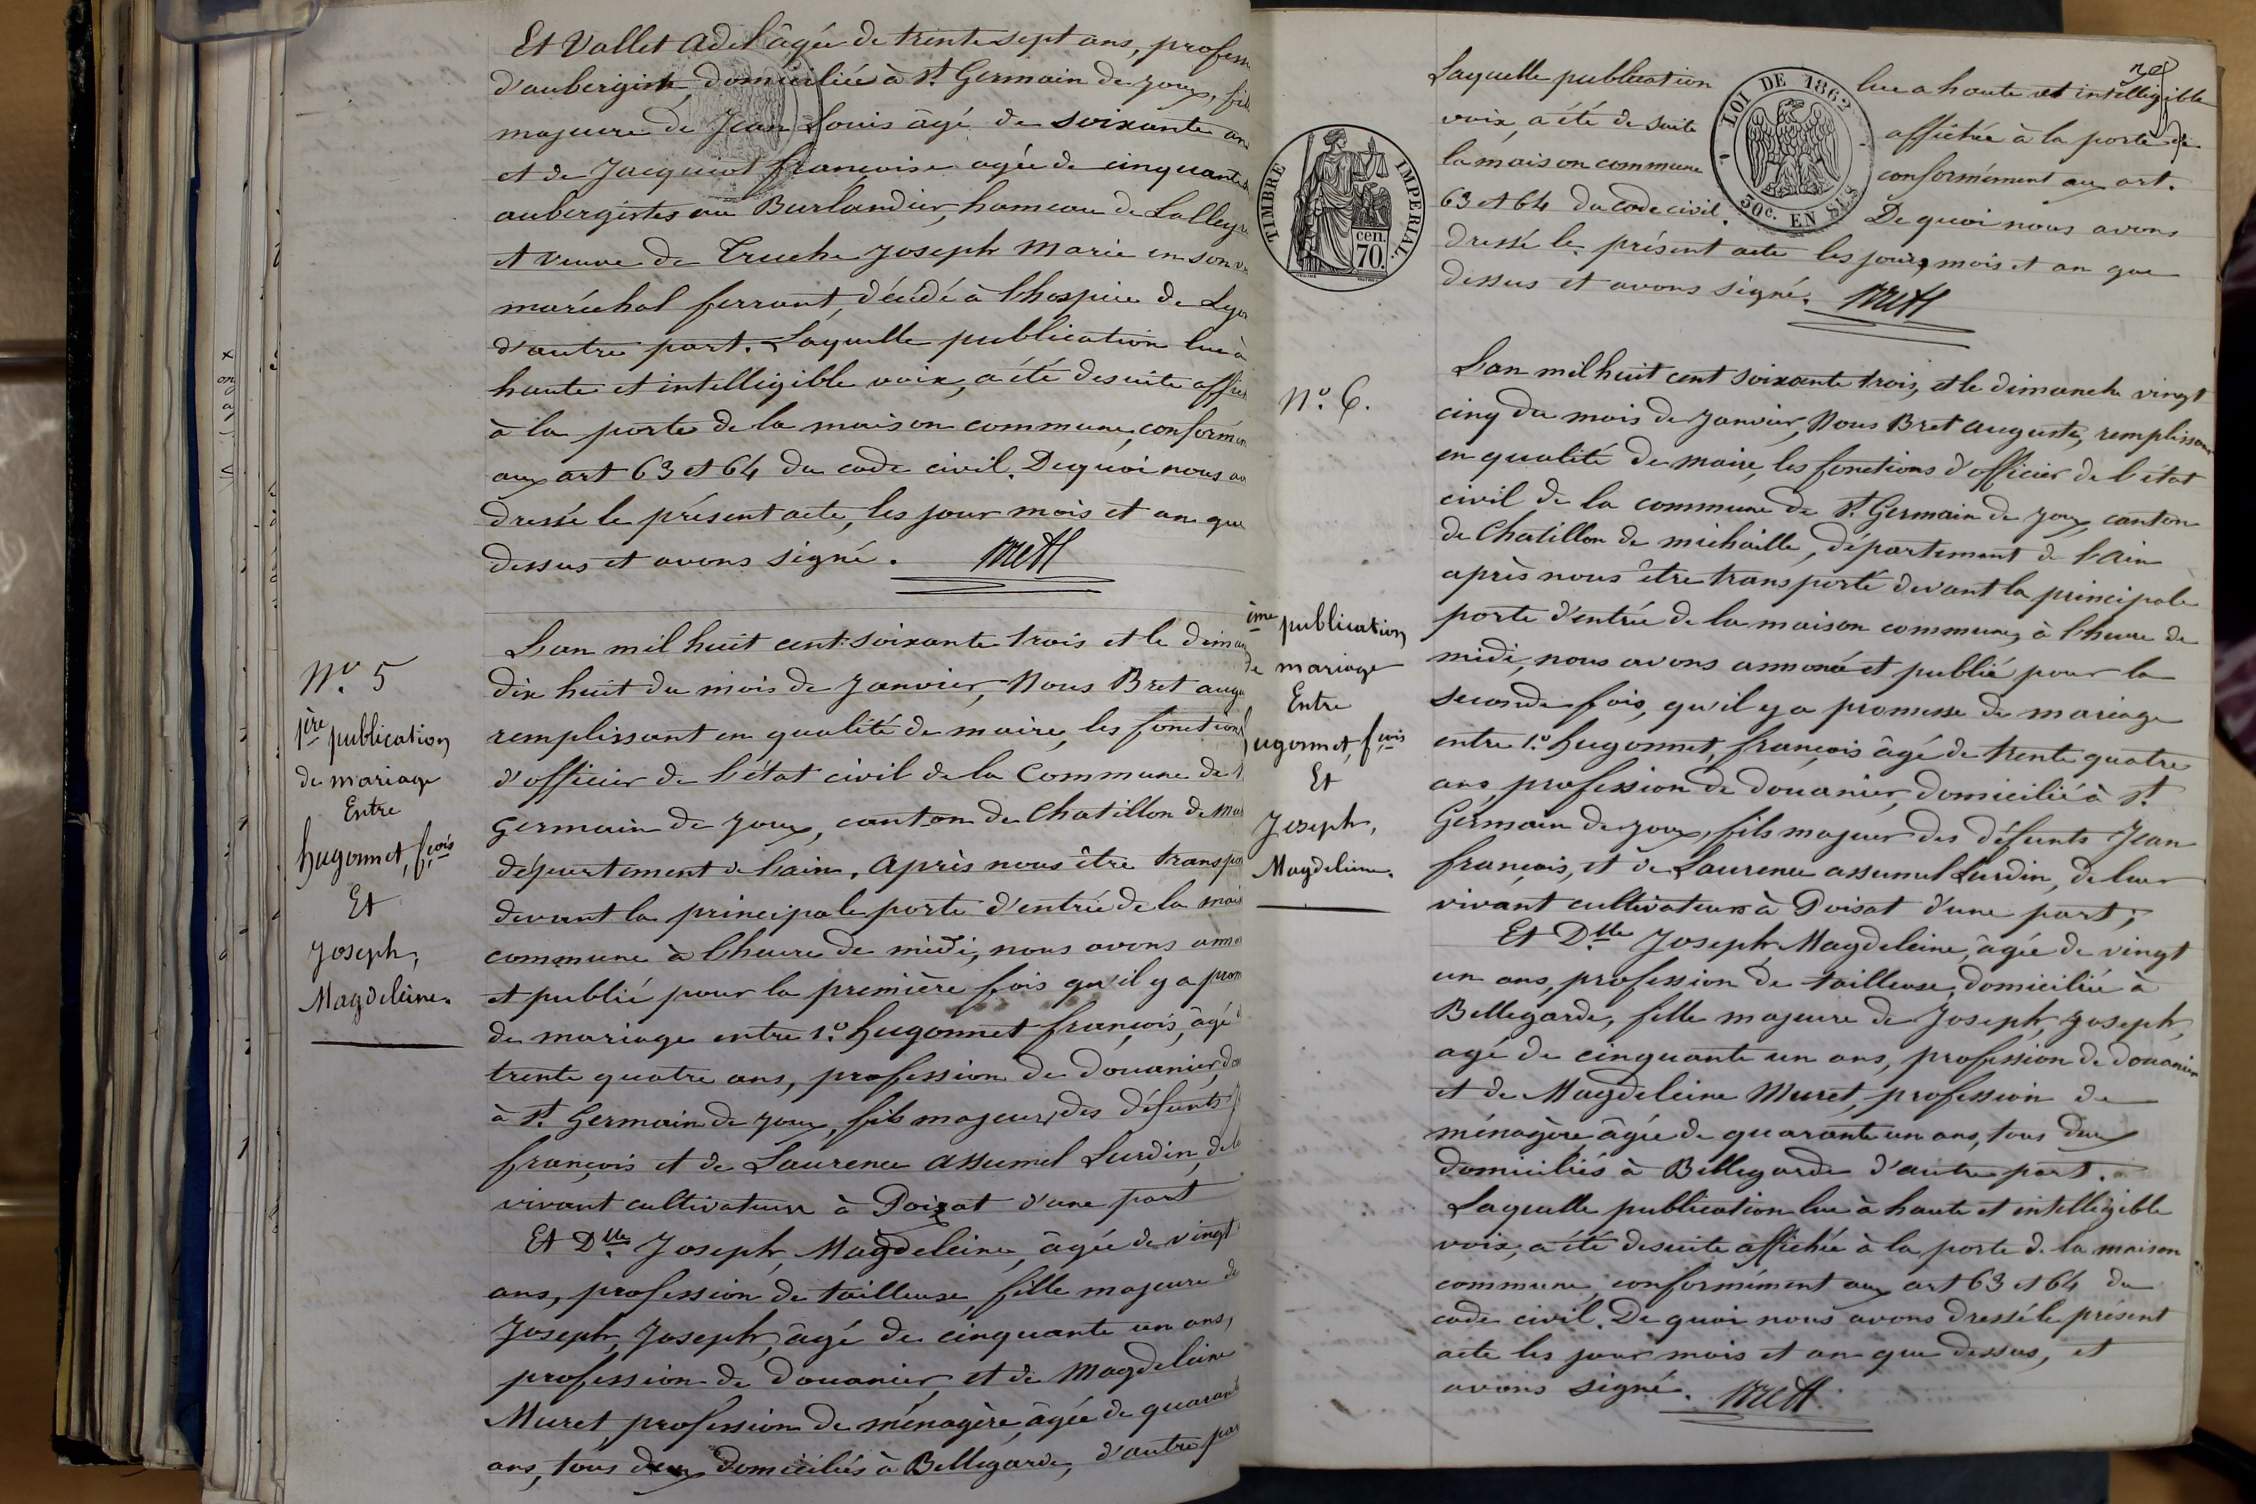 Et Vallet Adel âgée de trente sept ans, profess
d'aubergiste, domiciliée à St. Germain de joux, fil
majeure de Jean Louis âgé de soixante an
et de Jacquiot françoise agée de cinquante
aubergistes au Burlandier, hameau de Lalley
et veuve de Truche Joseph Marie en son v
maréchal ferrant, décédé à l'hospice de Lyo
d'autre part. Laquelle publication lue à
haute et intelligible voix, a été desuite affi
à la porte de la maison commune, conformém
aux art 63 et 64 du code civil. Dequoi nous av
dressé le présent acte, les jour mois et an que
dessus et avons signé. Bret
N° 5
1ère publication
de mariage
Entre
hugonnet, fcois
Et
Joseph,
Magdeleine.
L'an mil huit cent soixante trois et le diman
dix huit du mois de Janvier, Nous Bret augu
remplissant en qualité de maire, les fonction
d'officier de l'état civil de la Commune de
Germain de joux, canton de Chatillon de
département de l'ain. Après nous être transpo
devant la principale porte d'entrée de la mais
commune à l'heure de midi, nous avons anno
et publié pour la première fois qu'il y a prom
de mariage entre 1.° hugonnet françois, âgé
trente quatre ans, profession de douanier, do
à St. Germain de joux, fils majeur, des défunts
françois et de Laurence Assumel Lurdin, de
vivant cultivateurs à Poizat d'une part
Et Dlle Joseph, Magdeleine, âgée de vingt
ans, profession de tailleuse, fille majeure de
Joseph, Joseph, âgé de cinquante un ans,
profession de douanier, et de Magdeleine
Muret, profession de ménagère, âgée de quarante
ans, tous deux domiciliés à Bellegarde, d'autre par
Laquelle publication lue a haute et intelligible
voix, a été de suite affichée à la porte de
la maison commune conformément aux art.
63 et 64 du code civil. De quoi nous avons
dressé le présent acte les jour, mois et an que
dessus et avons signé. Bret
LOI DE 1862
50c. EN SUS
TIMBRE IMPERIAL
cen.
70.
N° 6.
ème publication
de mariage
Entre
hugonnet, fcois
Et
Joseph,
Magdeleine.
L'an mil huit cent soixante trois, et le dimanche vingt
cinq du mois de Janvier, Nous Bret auguste, remplissant
en qualité de maire, les fonctions d'officier de l'état
civil de la commune de St. Germain de joux, canton
de Chatillon de michaille, département de l'ain
après nous être transporté devant la principale
porte d'entrée de la maison commune, à l'heure de
midi, nous avons annoncé et publié pour la
seconde fois, qu'il y a promesse de mariage
entre 1.° hugonnet, françois âgé de trente quatre
ans, profession de douanier, domicilié à St.
Germain de joux, fils majeur des défunts Jean
françois, et de Laurence assumel Lurdin, de leur
vivant cultivateurs à Poisat d'une part;
Et Dlle Joseph, Magdeleine, âgée de vingt
un ans, profession de tailleuse, domiciliée à
Bellegarde, fille majeure de Joseph, Joseph,
agé de cinquante un ans, profession de douanier
et de Magdeleine Muret, profession de
ménagère âgée de quarante un ans, tous deux
domiciliés à Bellegarde d'autre part.
Laquelle publication lue à haute et intelligible
voix, a été desuite affichée à la porte de la maison
commune, conformément aux art 63 et 64 du
code civil. De quoi nous avons dressé le présent
acte les jour mois et an que dessus, et
avons signé. Bret